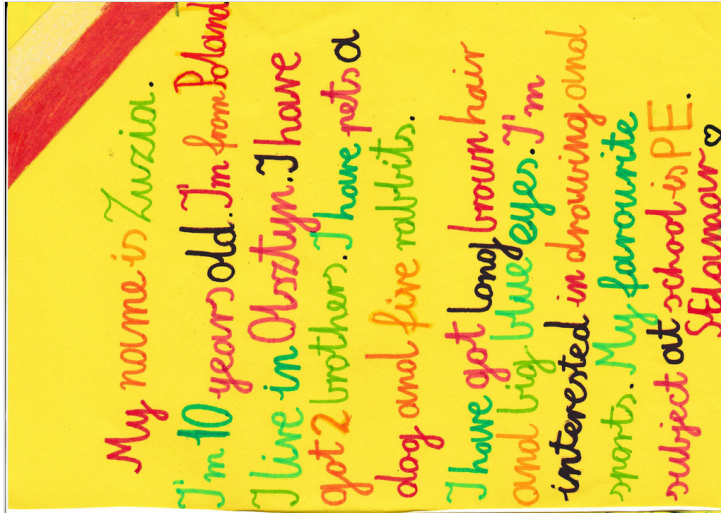 My name is Zuzia.
I'm 10 years old. I'm from Poland
I live in Olsztyn. I have
got 2 brothers. I have pets a
dog and five rabbits.
I have got long brown hair
and big blue eyes. I'm
interested in drowing and
sports. My favourite
subject at school is PE.